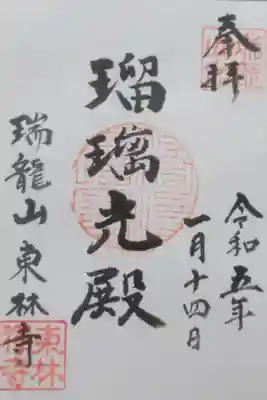 奉拝
令和五年
一月十四日
瑠璃光殿
瑞龍山東林寺
東林
禅寺